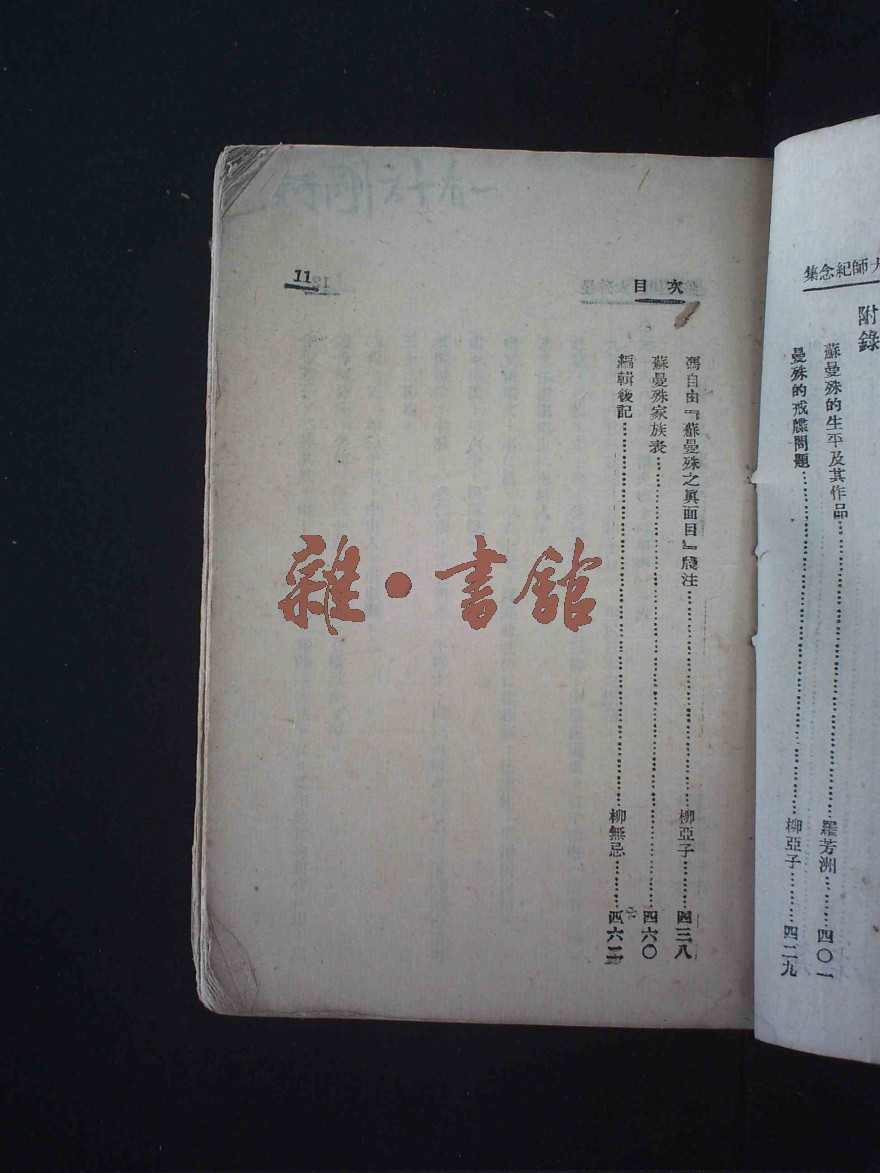 大師紀念集
附錄
蘇曼殊的生平及其作品……羅芳洲……四〇一
曼殊的戒牒問題……柳亞子……四二九
目次
11
馮自由『蘇曼殊之眞面目』牋注……柳亞子……四三八
蘇曼殊家族表……四六〇
編輯後記……柳無忌……四六二
雜·書館